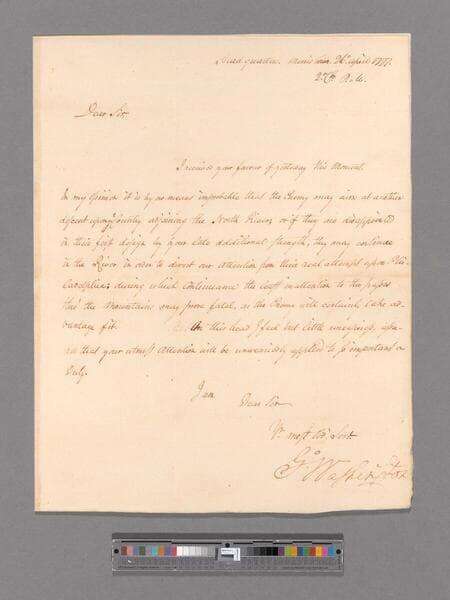 Head quarters Morris Town 26th April 1777.
P.M.
Dear Sir,
I received your favour of yesterday this Moment.
In my opinion it is by no means improbable that the Enemy may aim at another
descent upon Country adjoining the North River, or if they are disappointed
in their first design by your late additional strength, they may continue
in the River in order to divert our attention from their real attempt upon Phi-
ladelphia; during which continuance the least inattention to the passes
thro' the Mountains may prove fatal, as the Enemy will certainly take ad-
vantage of it. On this head I feel but little uneasiness, assu-
red that your utmost Attention will be unweariedly applied to so important a
Duty.
I am
Dear Sir
Yr. most Obt. Servt.
Go. Washington